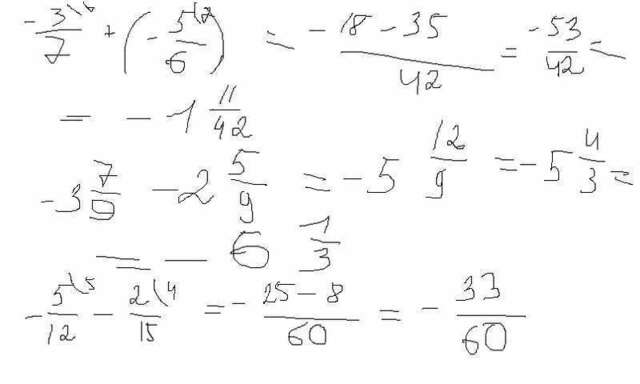 -3\6/7 + (-5\7/6) = -18-35/42 = -53/42 =
= -1 11/42
-3 7/9 - 2 5/9 = -5 12/9 = -5 4/3 =
= -6 1/3
-5\5/12 - 2\4/15 = -25-8/60 = -33/60